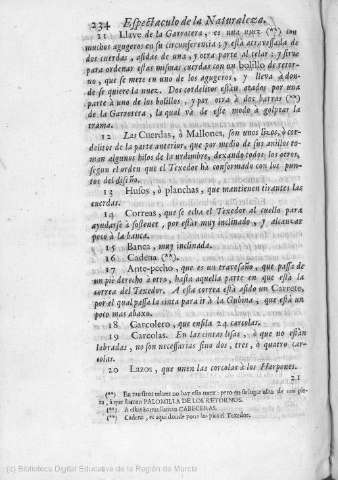 234 Espectaculo de la Naturaleza.
11 Llave de la Garrotera, es una nuez (**) con
muchos agugeros en su circunferencia; y está atravessada de
dos cuerdas, asidas de una, y otra parte al telar: y sirve
para ordenar estas mismas cuerdas con un bolillo de retor-
no, que se mete en uno de los agugeros, y lleva á don-
de se quiere la nuez. Dos cordelitos están atados por una
parte à uno de los bolillos, y por otra à dos barras (**)
de la Garrotera, la qual vá de este modo à golpear la
trama.
12 Las Cuerdas, ò Mallones, son unos lizos, ò cor-
delitos de la parte anterior, que por medio de sus anillos to-
man algunos hilos de la urdimbre, dexando todos los otros,
segun el orden que el Texedor ha conformado con los pun-
tos del diseño.
13 Husos, ò planchas, que mantienen tirantes las
cuerdas.
14 Correas, que se echa el Texedor al cuello para
ayudarse à sostener, por estár muy inclinado, y alcanzar
poco à la banca.
15 Banca, muy inclinada.
16 Cadena (**).
17 Ante-pecho, que es un travesaño, que passa de
un pie derecho à otro, hasta aquella parte en que está la
correa del Texedor. A esta correa está asido un Carrete,
por el qual passa la cinta para ir à la Gubina, que está un
poco mas abaxo.
18 Carcolero, que ensila 24 carcolas.
19 Carcolas. En las cintas lisas, ò que no están
labradas, no son necessarias sino dos, tres, ò quatro carco-
las.
20 Lazos, que unen las carcolas à los Harpones.
21
(**) En nuestros telares no hay esta nuez: pero en su lugar usan de una pie-
za, à que llaman PALOMILLA DE LOS RETORNOS.
(**) A estas barras llaman CABECERAS.
(**) Cadera, es aqui donde pone los pies el Texedor.
(c) Biblioteca Digital Educativa de la Región de Murcia